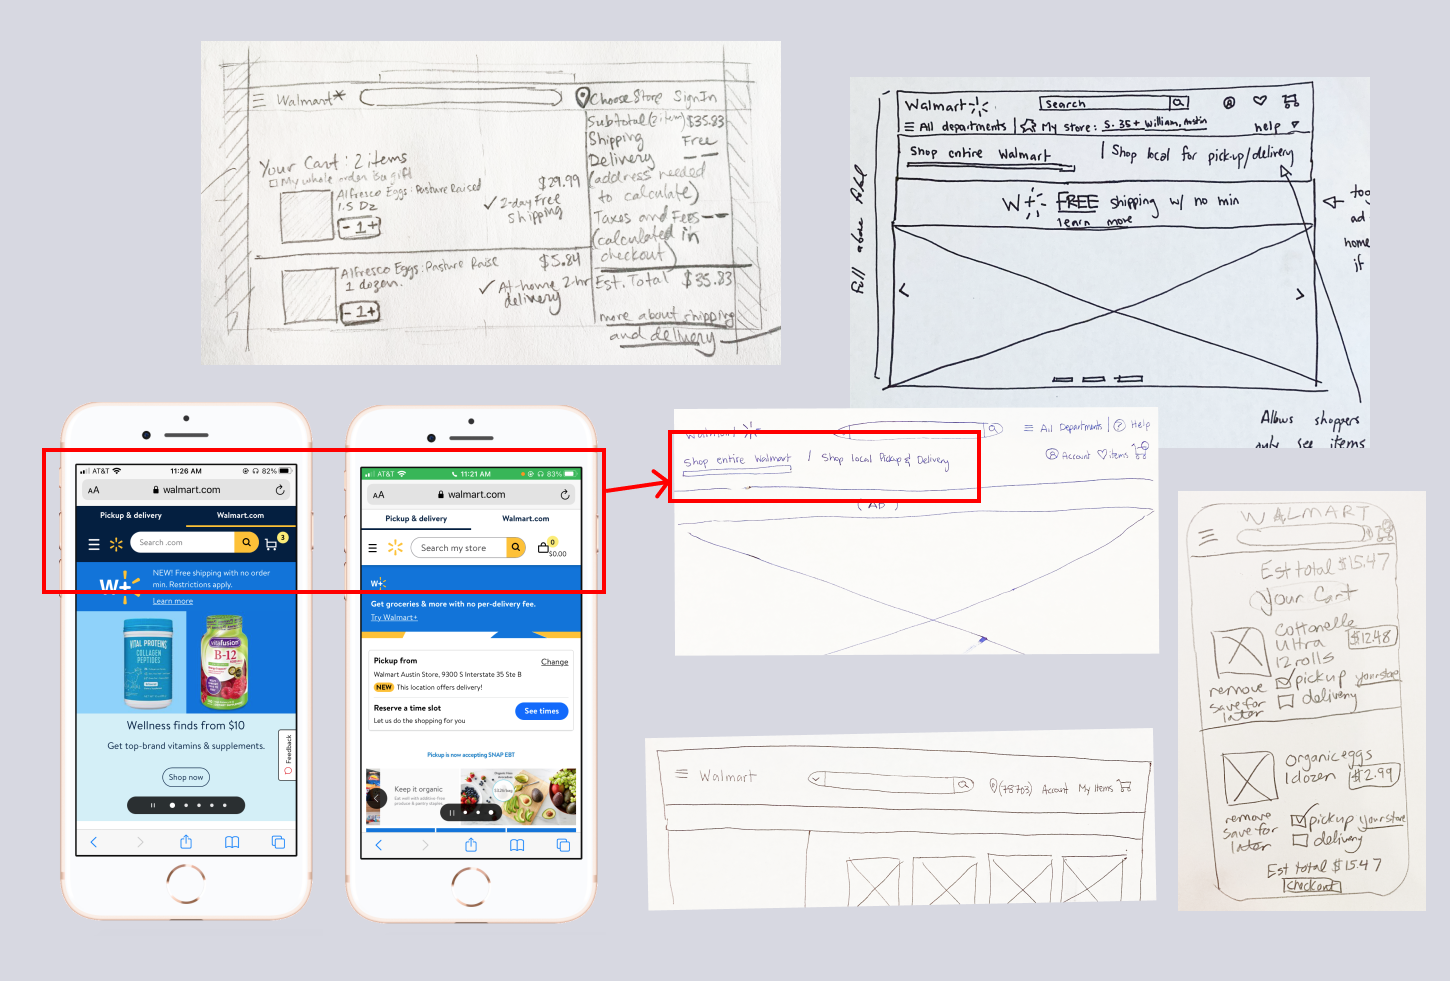 Walmart
Choose Store Sign In
Your Cart: 2 items
My whole order is a gift
Alfresco Eggs: Pasture Raised
1.5 Dz
- 1 +
$29.99
✓ 2-day Free
shipping
Alfresco Eggs: Pasture Raise
1 dozen.
- 1 +
$5.84
✓ At-home 2-hr
delivery
Subtotal (2 item) $35.83
Shipping Free
Delivery --
(address needed
to calculate)
Taxes and Fees --
(calculated in
checkout)
Est. Total $35.83
more about shipping
and delivery
Full above fold
Walmart
Search
All departments | My store: S. 35 + William, Austin
help
Shop entire Walmart | Shop local for pick-up/delivery
W+ FREE shipping w/ no min
learn more
<
>
tog
ad
home
if
Allows shoppers
only see items
AT&T 11:26 AM 82%
AA walmart.com
Pickup & delivery Walmart.com
Search .com
3
W+
NEW! Free shipping with no order
min. Restrictions apply.
Learn more
VITAL PROTEINS
COLLAGEN
PEPTIDES
vitafusion
B-12
Wellness finds from $10
Get top-brand vitamins & supplements.
Shop now
Feedback
AT&T 11:21 AM 83%
AA walmart.com
Pickup & delivery Walmart.com
Search my store
0
$0.00
W+
Get groceries & more with no per-delivery fee.
Try Walmart+
Pickup from Change
Walmart Austin Store, 9300 S Interstate 35 Ste B
NEW This location offers delivery!
Reserve a time slot
Let us do the shopping for you
See times
Pickup is now accepting SNAP EBT
Keep it organic
Eat well with additive-free
produce & pantry staples.
Walmart
All Departments | ? Help
Shop entire Walmart / Shop local Pickup & Delivery
Account items
(AD)
Walmart
(78703) Account My Items
WALMART
Est total $15.47
Your Cart
Cottonelle
Ultra
12 rolls
$12.48
remove
save for
later
pickup your store
delivery
organic eggs
1 dozen
$2.99
remove
save for
later
pickup your store
delivery
Est total $15.47
Checkout